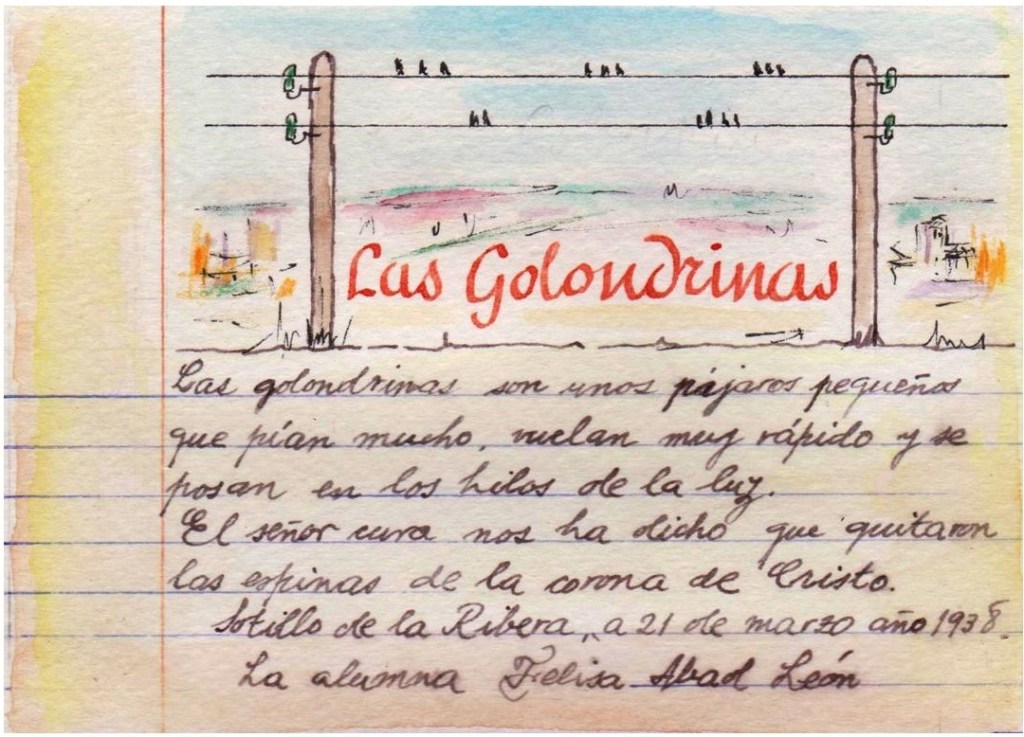 Las Golondrinas
Las golondrinas son unos pájaros pequeños
que pían mucho, vuelan muy rápido y se
posan en los hilos de la luz.
El señor cura nos ha dicho que quitaron
las espinas de la corona de Cristo.
Sotillo de la Ribera, a 21 de marzo año 1938.
La alumna Felisa Abad León